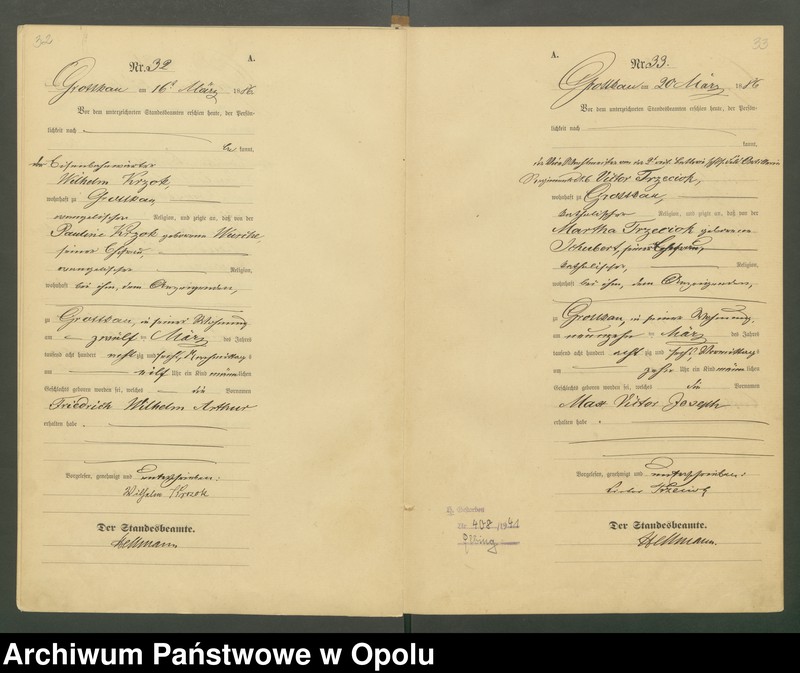 32
A.
Nr. 32
Grottkau am 16t März 1886
Vor dem unterzeichneten Standesbeamten erschien heute, der Persön-
lichkeit nach
be kannt,
der Eisenbahnwärter
Wilhelm Krzok,
wohnhaft zu Grottkau
evangelischer Religion, und zeigte an, daß von der
Pauline Krzok geborene
seiner Ehefrau,
evangelischer Religion,
wohnhaft bei ihm, dem Anzeigenden,
zu Grottkau, in seiner Wohnung
am zwölften März des Jahres
tausend acht hundert acht zig und sechs, Nachmittags
um elf Uhr ein Kind männlichen
Geschlechts geboren worden sei, welches die Vornamen
Friedrich Wilhelm Arthur
erhalten habe.
Vorgelesen, genehmigt und unterschrieben:
Wilhelm Krzok
Der Standesbeamte.
Hellmann
33
A.
Nr. 33.
Grottkau am 20 März 1886
Vor dem unterzeichneten Standesbeamten erschien heute, der Persön-
lichkeit nach
kannt,
der Vice Wachtmeister von der
Regiments Victor Trzeciok,
wohnhaft zu Grottkau,
katholischer Religion, und zeigte an, daß von der
Martha Trzeciok geborenen
Schubert, seiner Ehefrau,
katholischer, Religion,
wohnhaft bei ihm, dem Anzeigenden,
zu Grottkau, in seiner Wohnung,
am neunzehnten März des Jahres
tausend acht hundert acht zig und sechs, Vormittags
um zehn Uhr ein Kind männlichen
Geschlechts geboren worden sei, welches die Vornamen
Max Victor Joseph
erhalten habe.
Vorgelesen, genehmigt und unterschrieben:
Victor Trzeciok
Der Standesbeamte.
Hellmann.
Nr. 408/1941
Elbing
Archiwum Państwowe w Opolu